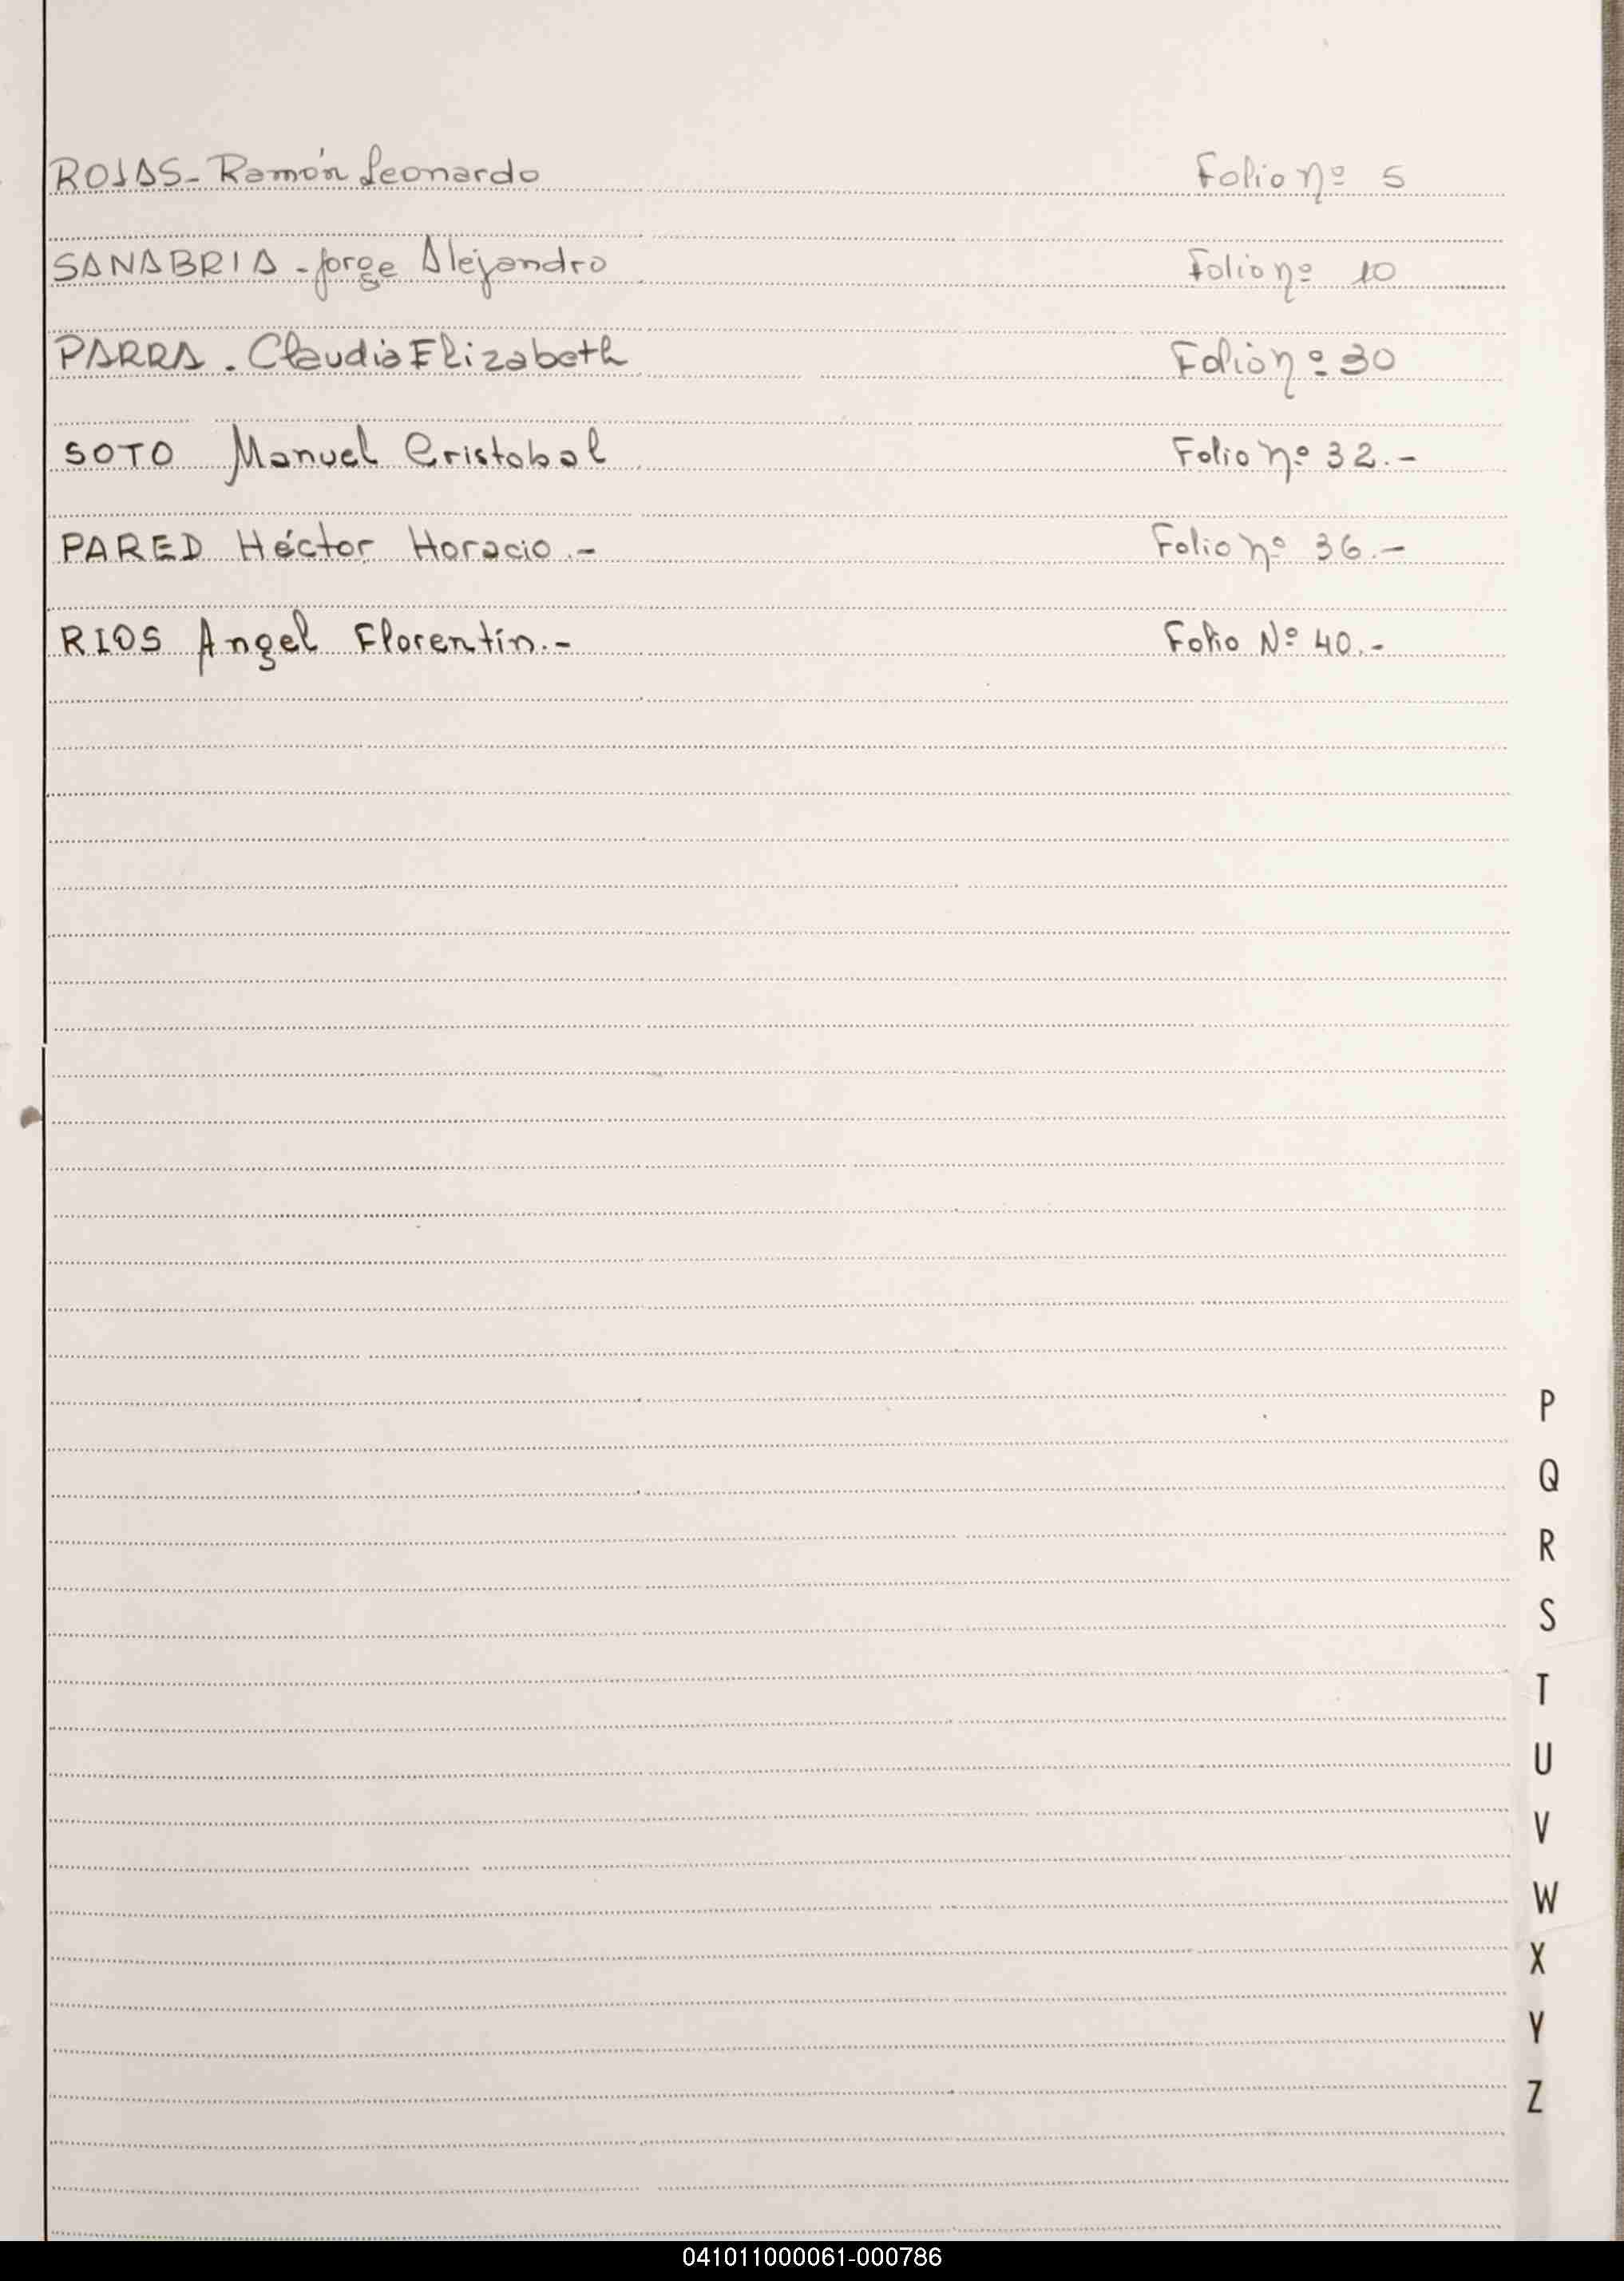 ROJAS - Ramón Leonardo Folio nº 5
SANABRIA - Jorge Alejandro Folio nº 10
PARRA . Claudia Elizabeth Folio nº 30
SOTO Manuel Cristobal Folio nº 32.-
PARED Héctor Horacio.- Folio nº 36.-
RIOS Angel Florentín.- Folio Nº 40.-
P
Q
R
S
T
U
V
W
X
Y
Z
041011000061-000786